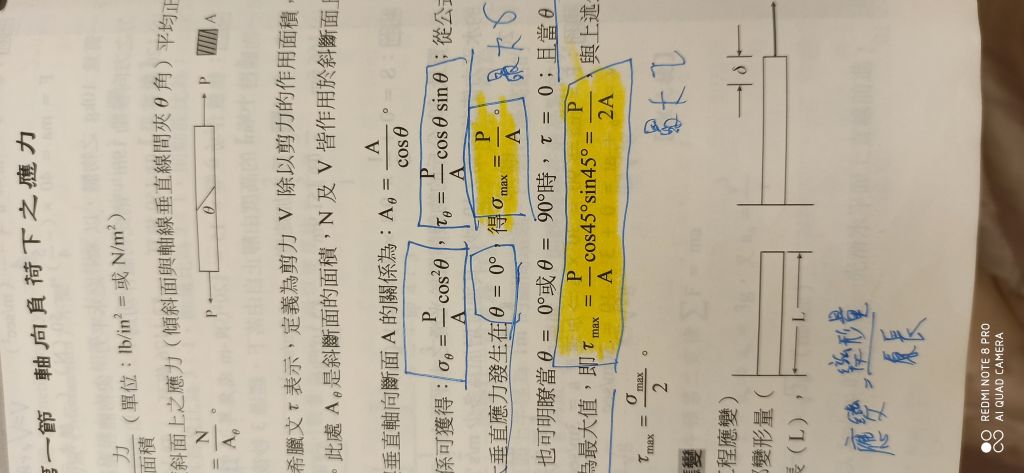 第一節 軸向負荷下之應力
力
面積 (單位：lb/in² = 或 N/m²)
斜斷面上之應力 (傾斜面與軸線垂直線間夾 θ 角) 平均正
= N/Aθ 。
P θ P A
希臘文 τ 表示，定義為剪力 V 除以剪力的作用面積，
。此處 Aθ 是斜斷面的面積，N 及 V 皆作用於斜斷面上
垂直軸向斷面 A 的關係為：Aθ = A/cosθ 。
係可獲得：σθ = P/A cos²θ，τθ = P/A cosθ sinθ；從公式
垂直應力發生在 θ = 0°，得 σmax = P/A 。 最大σ
也可明瞭當 θ = 0°或 θ = 90°時，τ = 0；且當 θ
為最大值，即 τmax = P/A cos45°sin45° = P/2A，與上述
最大τ
τmax = σmax/2 。
應變
工程應變)
變形量 (
長 (L)，
L δ
應變 = 變形量/原長
REDMI NOTE 8 PRO
AI QUAD CAMERA